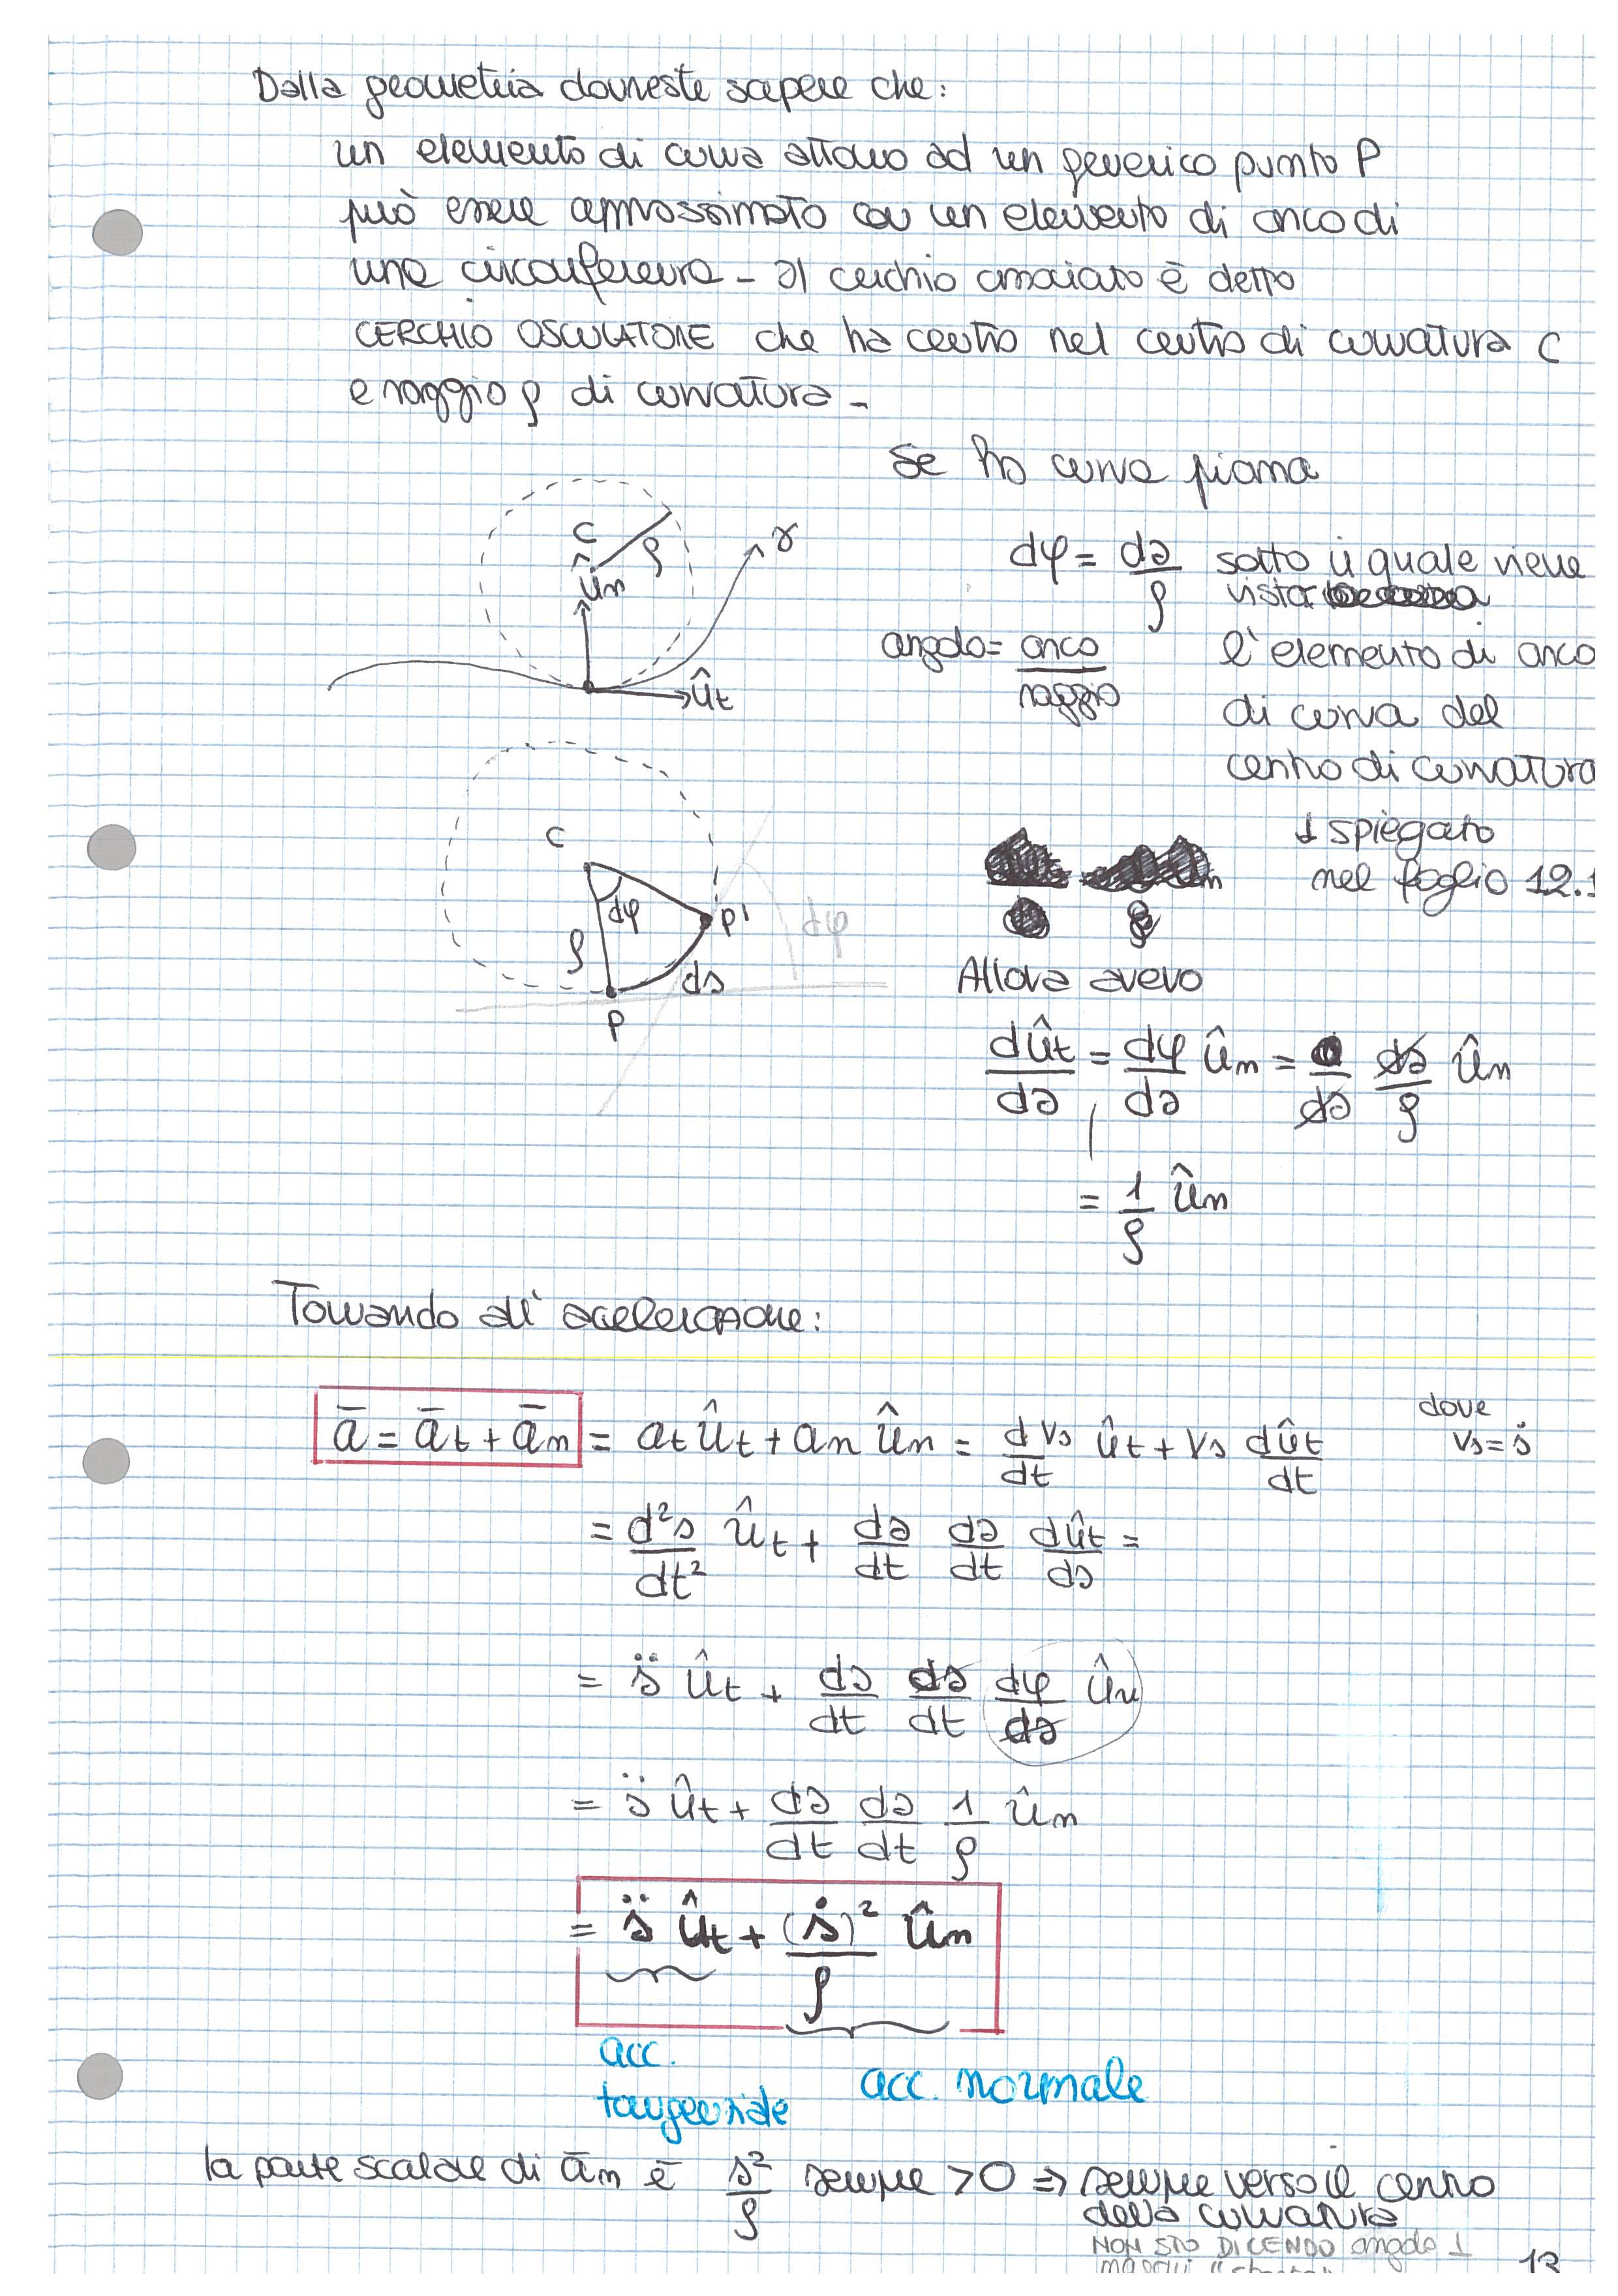 Dalla geometria dovreste sapere che:
un elemento di curva attorno ad un generico punto P
può essere approssimato con un elemento di arco di
una circonferenza - Il cerchio associato è detto
CERCHIO OSCULATORE che ha centro nel centro di curvatura C
e raggio ρ di curvatura -
Se ho curva piana
C
ρ
ûn
γ
ût
dφ = ds/ρ sotto il quale viene
vista
angolo = arco/raggio
l'elemento di arco
di curva del
centro di curvatura
↓ spiegato
nel foglio 12.1
C
dφ
ρ
P'
ds
P
dφ
Allora avevo
dût/ds = dφ/ds ûn = /ds ds/ρ ûn
= 1/ρ ûn
Tornando all'accelerazione:
ā = āt + ān = at ût + an ûn = dvs/dt ût + vs dût/dt
dove
vs = ṡ
= d²s/dt² ût + ds/dt ds/dt dût/ds =
= s̈ ût + ds/dt ds/dt dφ/ds ûn
= s̈ ût + ds/dt ds/dt 1/ρ ûn
= s̈ ût + (ṡ)²/ρ ûn
acc.
tangenziale
acc. normale
la parte scalare di ān è ṡ²/ρ sempre >0 ⇒ sempre verso il centro
della curvatura
NON STO DICENDO angolo ⊥
13